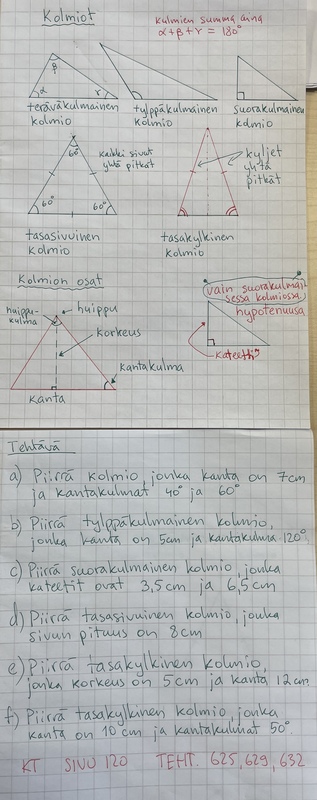 Kolmiot
Kulmien summa aina
α+β+γ = 180°
β
α
γ
teräväkulmainen
kolmio
tylppäkulmainen
kolmio
suorakulmainen
kolmio
60°
60°
60°
kaikki sivut
yhtä pitkät
kyljet
yhtä
pitkät
tasasivuinen
kolmio
tasakylkinen
kolmio
Kolmion osat
vain suorakulmai
sessa kolmiossa
huippu-
kulma
huippu
korkeus
kantakulma
kanta
hypotenuusa
kateetti
Tehtävä
a) Piirrä kolmio, jonka kanta on 7cm
ja kantakulmat 40° ja 60°
b) Piirrä tylppäkulmainen kolmio,
jonka kanta on 5cm ja kantakulma 120°
c) Piirrä suorakulmainen kolmio, jonka
kateetit ovat 3,5cm ja 6,5cm
d) Piirrä tasasivuinen kolmio, jonka
sivun pituus on 8cm
e) Piirrä tasakylkinen kolmio,
jonka korkeus on 5cm ja kanta 12cm.
f) Piirrä tasakylkinen kolmio, jonka
kanta on 10cm ja kantakulmat 50°.
KT SIVU 120 TEHT. 625, 629, 632